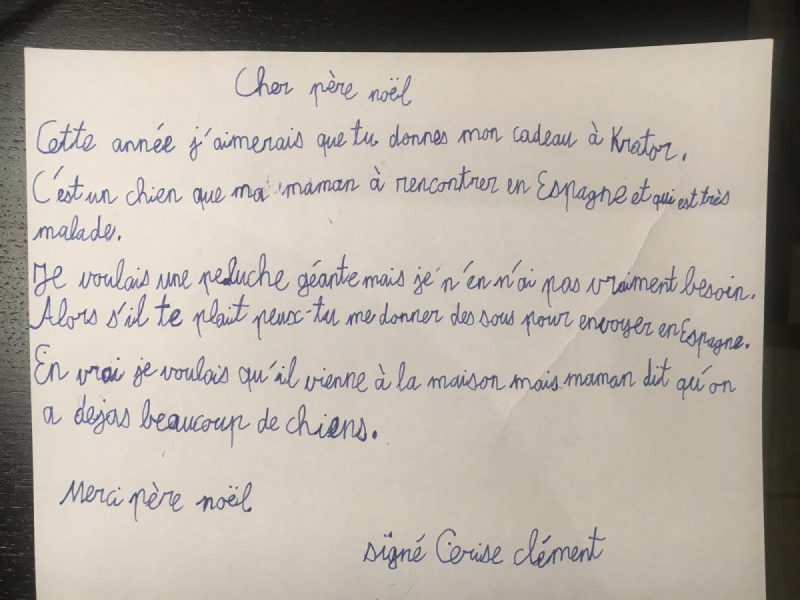 Cher père noël
Cette année j'aimerais que tu donnes mon cadeau à Krator.
C'est un chien que ma maman à rencontrer en Espagne et qui est très
malade.
Je voulais une peluche géante mais je n'en n'ai pas vraiment besoin.
Alors s'il te plait peux-tu me donner des sous pour envoyer en Espagne.
En vrai je voulais qu'il vienne à la maison mais maman dit qu'on
a dejas beaucoup de chiens.
Merci père noël
signé Cerise clément